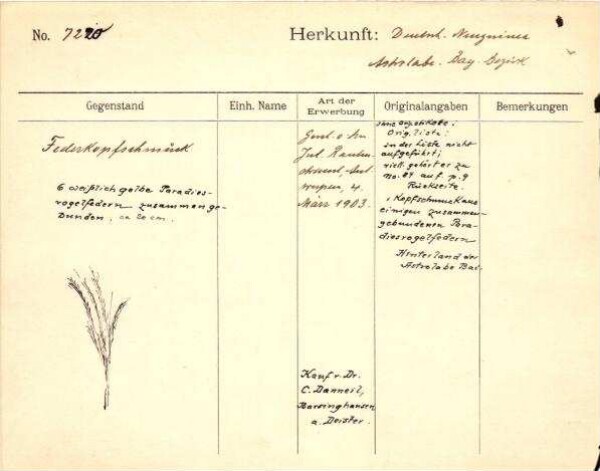 No. 7220
Herkunft: Deutsch. Neuguinea
Astrolabe-Bay-Bezirk
Gegenstand
Einh. Name
Art der
Erwerbung
Originalangaben
Bemerkungen
Federkopfschmuck
6 weißlich gelbe Paradies-
vogelfedern zusammenge-
bunden. ca 20 cm.
März 1903.
Kauf v. Dr.
C. Dannert,
Barsinghausen
a. Deister.
Orig. liste:
in der Liste nicht
aufgeführt;
viell. gehört er zu
No. 84 auf p. 9
Rückseite.
1 Kopfschmuck aus
einigen zusammen-
gebundenen Para-
diesvogelfedern
Hinterland der
Astrolabe Bai.